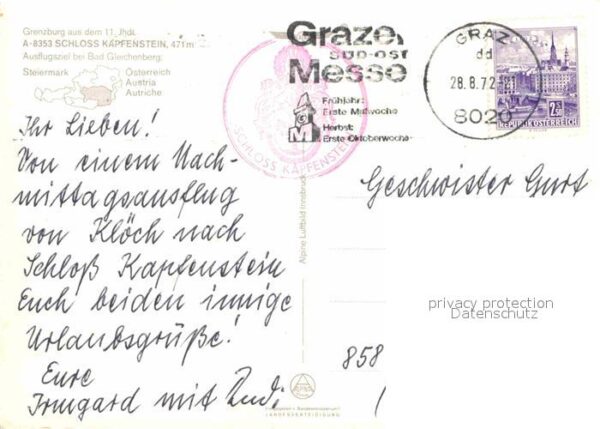 Grenzburg aus dem 11. Jhdt.
A-8353 SCHLOSS KAPFENSTEIN, 471 m
Ausflugsziel bei Bad Gleichenberg:
Steiermark
Österreich
Austria
Autriche
SCHLOSS KAPFENSTEIN
Grazer
SÜD-OST
Messe
Frühjahr:
Erste Maiwoche
Herbst:
Erste Oktoberwoche
GM
GRAZ
dd
28.8.72-21
8020
2.50
REPUBLIK ÖSTERREICH
Ihr Lieben!
Von einem Nach-
mittagsausflug
von Klöch nach
Schloß Kapfenstein
Euch beiden innige
Urlaubsgrüße!
Eure
Irmgard mit Rudi
Geschwister Gurt
Alpine Luftbild Innsbruck
privacy protection
Datenschutz
858
LANDESVERTEIDIGUNG